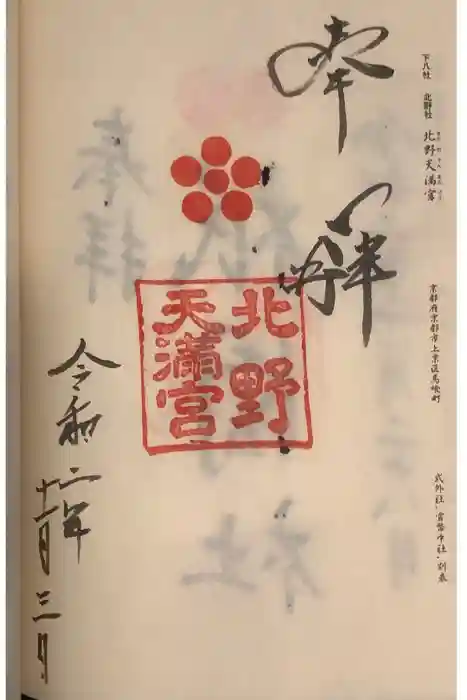 下八社 北野社 北野天満宮
京都府京都市上京区馬喰町
式外社・官幣中社・別表
奉拝
北野
天満宮
令和二年
十一月三日